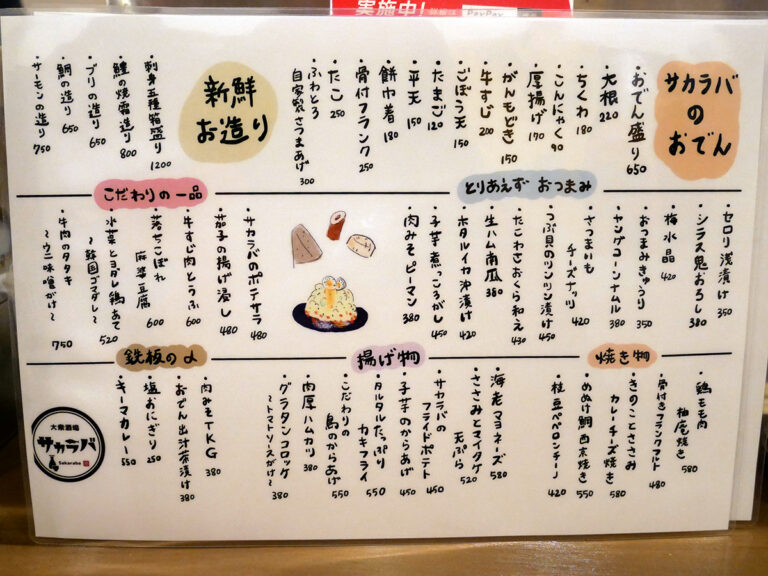 実施中!
PayPay
サカラバのおでん
・おでん盛り 650
・大根 220
・ちくわ 180
・こんにゃく 90
・厚揚げ 170
・がんもどき 150
・牛すじ 200
・ごぼう天 150
・たまご 120
・平天 150
・餅巾着 180
・骨付フランク 250
・たこ 250
・ふわとろ自家製さつまあげ 300
新鮮お造り
・刺身五種箱盛り 1200
・鰹の焼霜造り 800
・ブリの造り 650
・鯛の造り 650
・サーモンの造り 750
とりあえずおつまみ
・セロリ浅漬け 350
・シラス鬼おろし 380
・梅水晶 420
・おつまみきゅうり 350
・ヤングコーンナムル 380
・さつまいもチーズナッツ 420
・つぶ貝のツンツン漬け 450
・たこわさおくら和え 430
・生ハム南瓜 380
・ホタルイカ沖漬け 420
・子芋煮っころがし 450
・肉みそピーマン 380
こだわりの一品
・サカラバのポテサラ 480
・茄子の揚げ浸し 480
・牛すじ肉とうふ 600
・落ちこぼれ麻婆豆腐 600
・水菜とヨダレ鶏あて 520
〜韓国ゴマダレ〜
・牛肉のタタキ 750
〜ウニ味噌がけ〜
焼き物
・鶏モモ肉柚庵焼き 580
・骨付きフランクフルト 480
・きのことささみカレーチーズ焼き 580
・めぬけ鯛西京焼き 550
・枝豆ペペロンチーノ 420
揚げ物
・海老マヨネーズ 580
・ささみとマイタケ天ぷら 520
・サカラバのフライドポテト 450
・子芋のからあげ 450
・タルタルたっぷりカキフライ 550
・こだわりの鳥のからあげ 550
・肉厚ハムカツ 380
・グラタンコロッケ 380
〜トマトソースがけ〜
鉄板の〆
・肉みそTKG 380
・おでん出汁茶漬け 380
・塩おにぎり 250
・キーマカレー 550
大衆酒場
サカラバ
Sakaraba